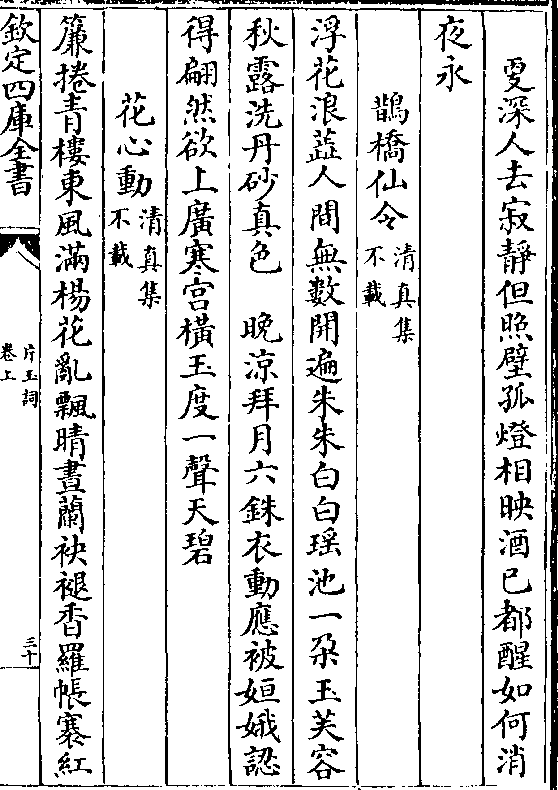 更深人去寂靜但照壁孤燈相映酒已都醒如何消
夜永
鵲橋仙令清真集不載
浮花浪蕋人間無數開遍朱朱白白瑶池一朶玉芙容
秋露洗丹砂真色　晚凉拜月六銖衣動應被姮娥認
得翩然欲上廣寒宫橫玉度一聲天碧
花心動清真集不載
簾捲青樓東風滿楊花亂飄晴晝蘭袂褪香羅帳褰紅
欽定四庫全書
片玉詞
卷上
三十